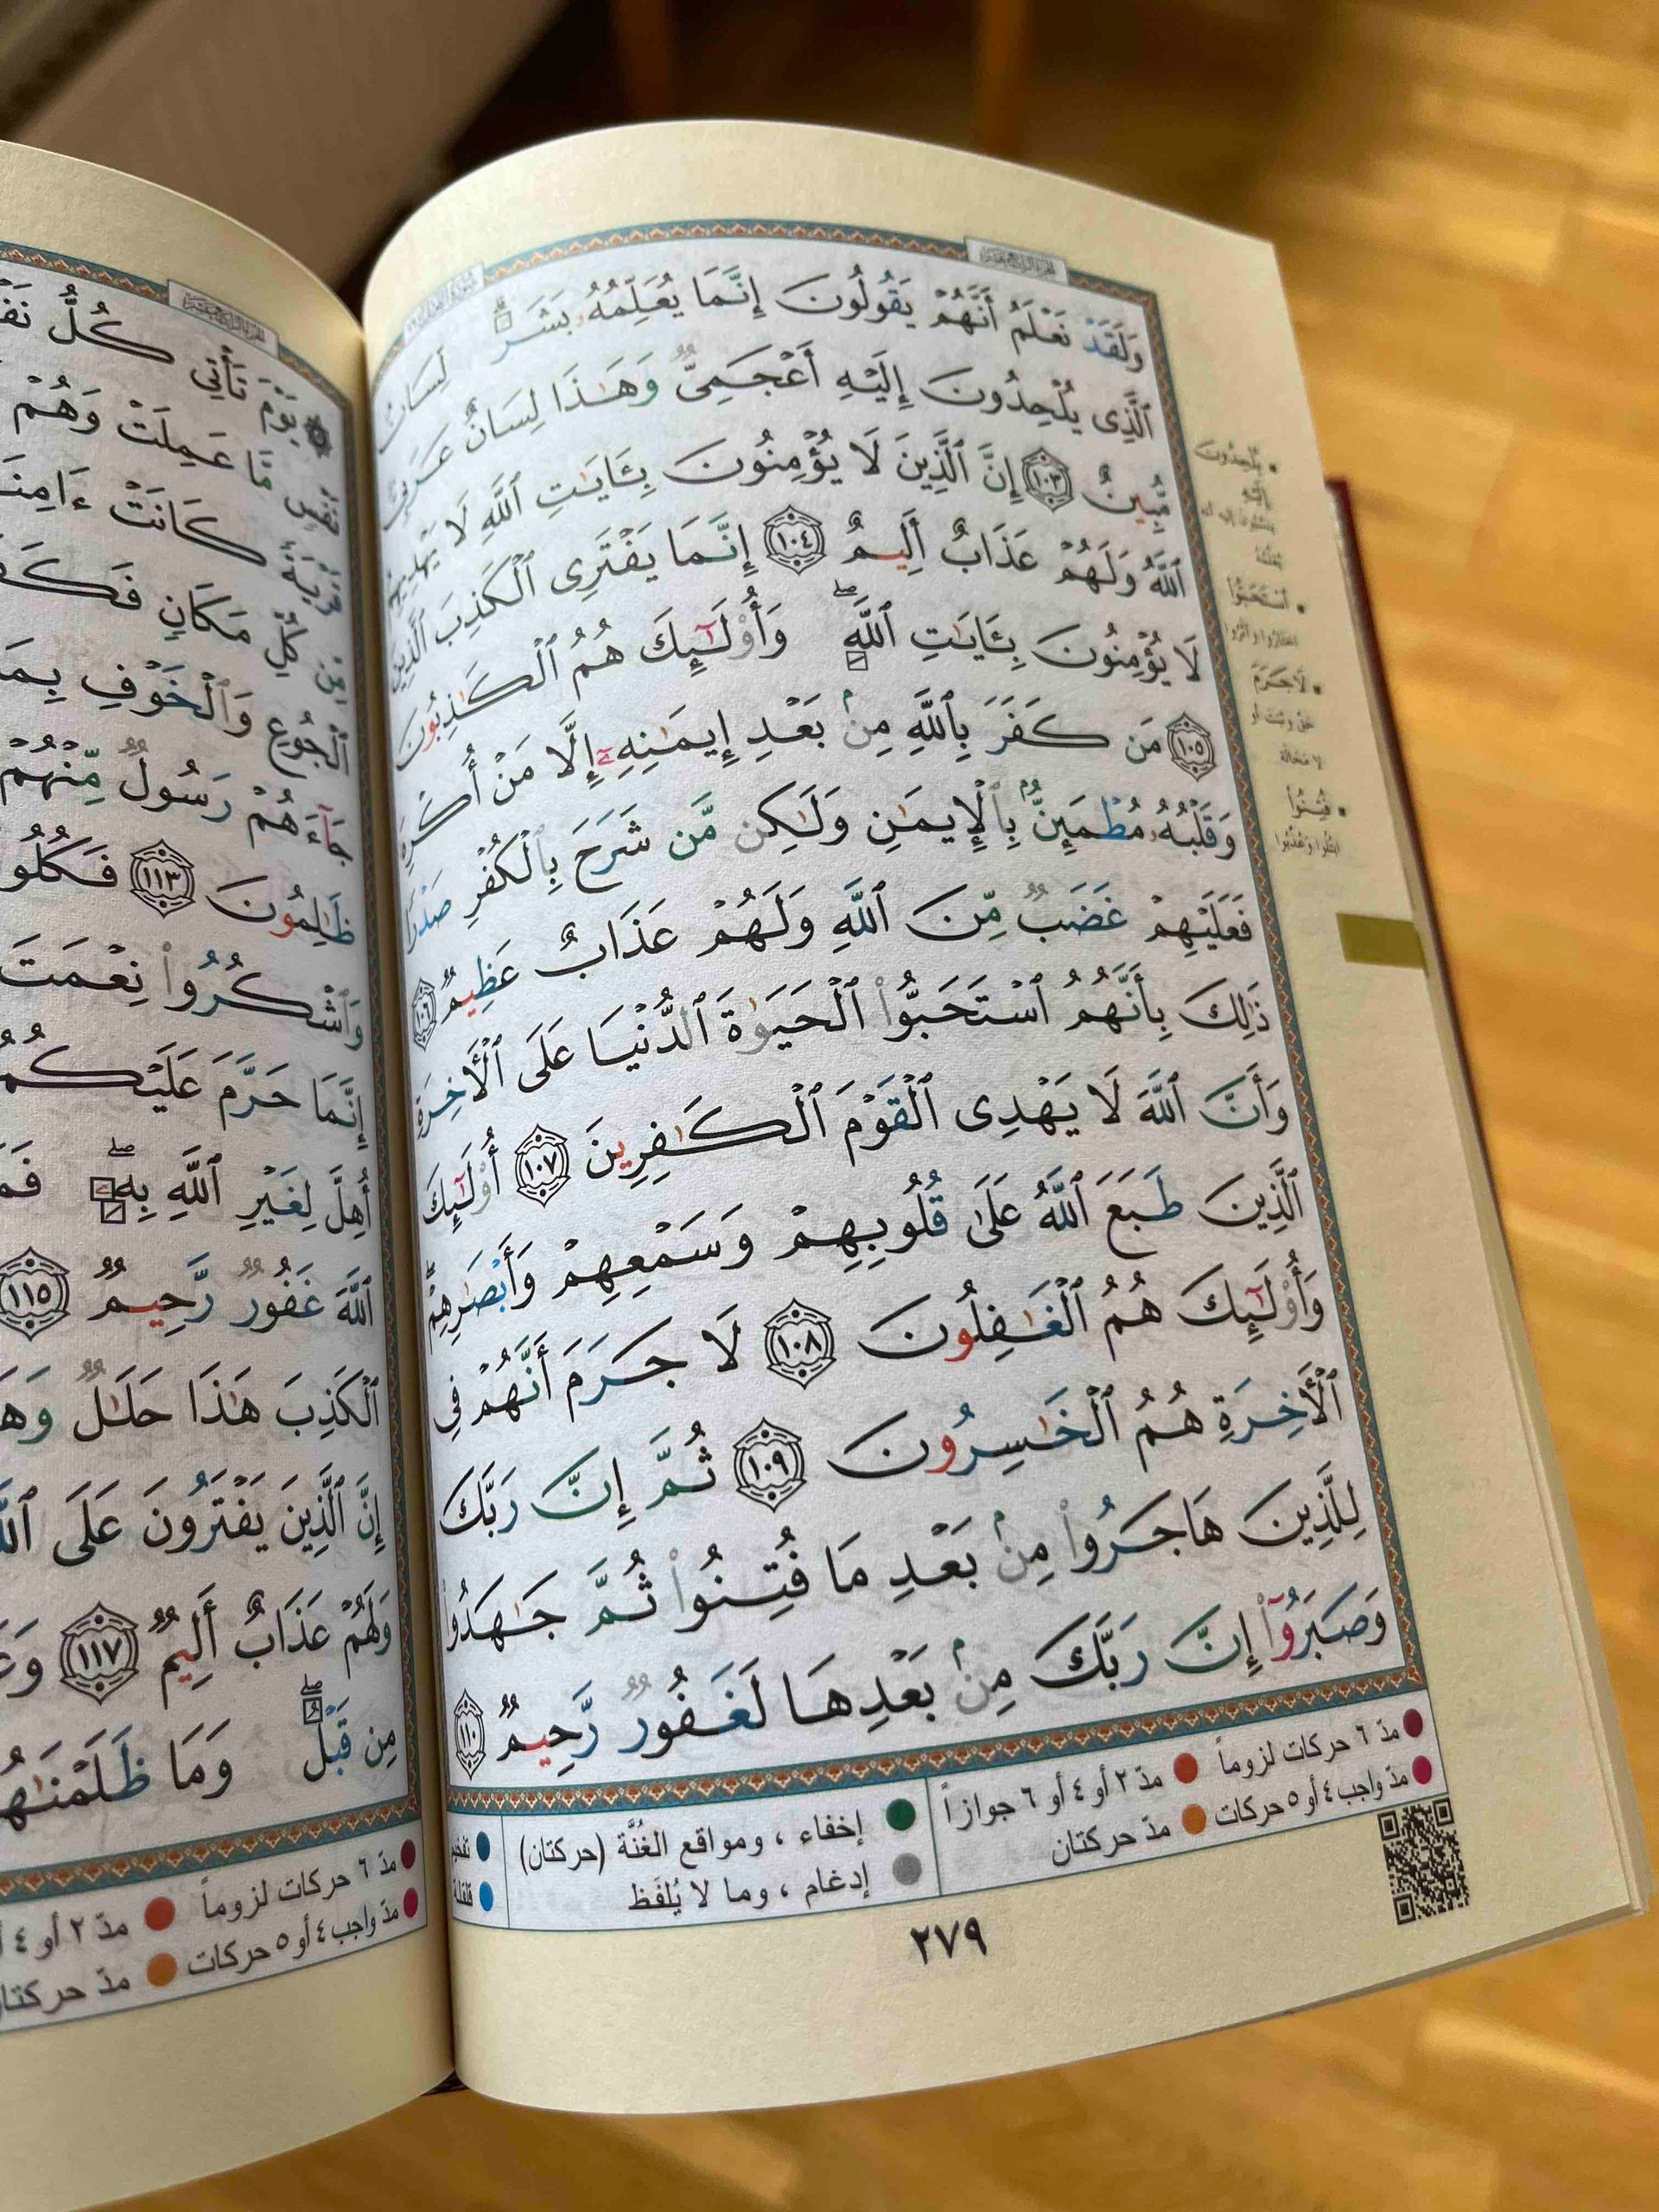 وَلَقَدْ نَعْلَمُ أَنَّهُمْ يَقُولُونَ إِنَّمَا يُعَلِّمُهُۥ بَشَرٌ ۗ لِّسَانُ
ٱلَّذِى يُلْحِدُونَ إِلَيْهِ أَعْجَمِىٌّ وَهَـٰذَا لِسَانٌ عَرَبِىٌّ
مُّبِينٌ ١٠٣ إِنَّ ٱلَّذِينَ لَا يُؤْمِنُونَ بِـَٔايَـٰتِ ٱللَّهِ لَا يَهْدِيهِمُ
ٱللَّهُ وَلَهُمْ عَذَابٌ أَلِيمٌ ١٠٤ إِنَّمَا يَفْتَرِى ٱلْكَذِبَ ٱلَّذِينَ
لَا يُؤْمِنُونَ بِـَٔايَـٰتِ ٱللَّهِ ۖ وَأُو۟لَـٰٓئِكَ هُمُ ٱلْكَـٰذِبُونَ
١٠٥ مَن كَفَرَ بِٱللَّهِ مِنۢ بَعْدِ إِيمَـٰنِهِۦٓ إِلَّا مَنْ أُكْرِهَ
وَقَلْبُهُۥ مُطْمَئِنٌّۢ بِٱلْإِيمَـٰنِ وَلَـٰكِن مَّن شَرَحَ بِٱلْكُفْرِ صَدْرًا
فَعَلَيْهِمْ غَضَبٌ مِّنَ ٱللَّهِ وَلَهُمْ عَذَابٌ عَظِيمٌ ١٠٦
ذَٰلِكَ بِأَنَّهُمُ ٱسْتَحَبُّوا۟ ٱلْحَيَوٰةَ ٱلدُّنْيَا عَلَى ٱلْـَٔاخِرَةِ
وَأَنَّ ٱللَّهَ لَا يَهْدِى ٱلْقَوْمَ ٱلْكَـٰفِرِينَ ١٠٧ أُو۟لَـٰٓئِكَ
ٱلَّذِينَ طَبَعَ ٱللَّهُ عَلَىٰ قُلُوبِهِمْ وَسَمْعِهِمْ وَأَبْصَـٰرِهِمْ ۖ
وَأُو۟لَـٰٓئِكَ هُمُ ٱلْغَـٰفِلُونَ ١٠٨ لَا جَرَمَ أَنَّهُمْ فِى
ٱلْـَٔاخِرَةِ هُمُ ٱلْخَـٰسِرُونَ ١٠٩ ثُمَّ إِنَّ رَبَّكَ
لِلَّذِينَ هَاجَرُوا۟ مِنۢ بَعْدِ مَا فُتِنُوا۟ ثُمَّ جَـٰهَدُوا۟
وَصَبَرُوٓا۟ إِنَّ رَبَّكَ مِنۢ بَعْدِهَا لَغَفُورٌ رَّحِيمٌ ١١٠
يُلْحِدُونَ
إِلَيْهِ
ٱسْتَحَبُّوا
لَا جَرَمَ
حق وثبت أو
لا محالة
فُتِنُوا
ابتُلوا وعُذِّبوا
مدّ ٦ حركات لزوماً مدّ ٢ أو ٤ أو ٦ جوازاً
مدّ واجب ٤ أو ٥ حركات مدّ حركتان
إخفاء ، ومواقع الغُنَّة (حركتان)
إدغام ، وما لا يُلفَظ
تفخيم
قلقلة
٢٧٩
۞ يَوْمَ تَأْتِى كُلُّ
نَفْسٍ مَّا عَمِلَتْ وَهُمْ
كَانَتْ ءَامِنَةً
مِّن كُلِّ مَكَانٍ
ٱلْجُوعِ وَٱلْخَوْفِ
جَآءَهُمْ رَسُولٌ مِّنْهُمْ
ظَـٰلِمُونَ ١١٣ فَكُلُوا۟
وَٱشْكُرُوا۟ نِعْمَتَ
إِنَّمَا حَرَّمَ عَلَيْكُمُ
أُهِلَّ لِغَيْرِ ٱللَّهِ بِهِۦ ۖ
ٱللَّهَ غَفُورٌ رَّحِيمٌ ١١٥
ٱلْكَذِبَ هَـٰذَا حَلَـٰلٌ
إِنَّ ٱلَّذِينَ يَفْتَرُونَ عَلَى
وَلَهُمْ عَذَابٌ أَلِيمٌ ١١٧
مِن قَبْلُ ۖ وَمَا ظَلَمْنَـٰهُمْ
مدّ ٦ حركات لزوماً مدّ ٢ أو ٤
مدّ واجب ٤ أو ٥ حركات مدّ حركتان